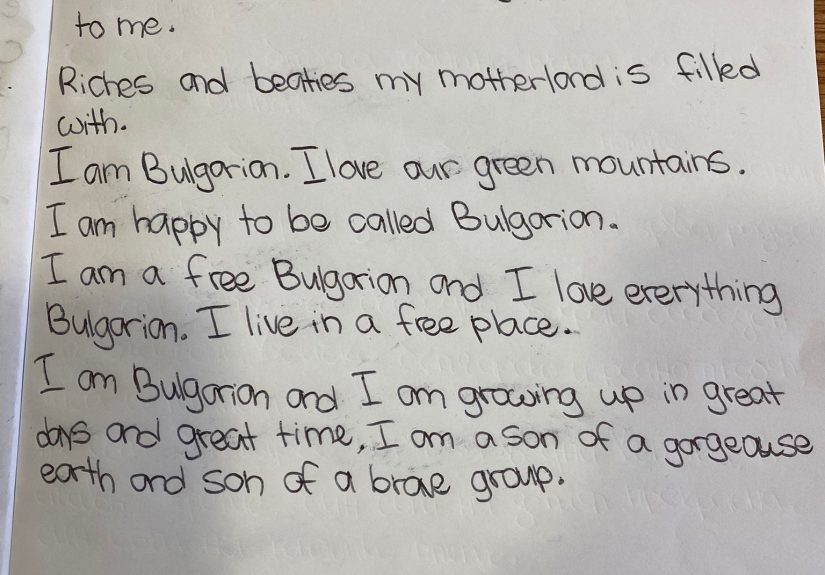 to me.
Riches and beaties my motherland is filled
with.
I am Bulgarian. I love our green mountains.
I am happy to be called Bulgarian.
I am a free Bulgarian and I love ererything
Bulgarian. I live in a free place.
I am Bulgarian and I am growing up in great
days and great time. I am a son of a gorgeouse
earth and son of a brave group.